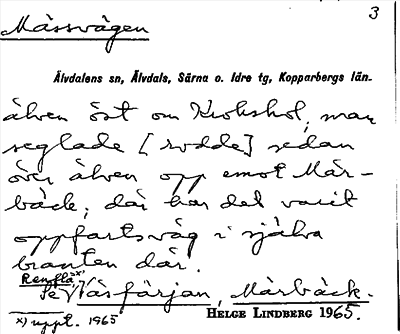 3
Mässvägen
Älvdalens sn, Älvdals, Särna o. Idre tg, Kopparbergs län.
älven öst om Krokshol, man
seglade [rodde] sedan
över älven opp emot Mär-
bäck; där har det varit
oppfartsväg i själva
branten där.
Renflä x)
Se Näsfärjan, Märbäck.
x) uppt. 1965
HELGE LINDBERG 1965.